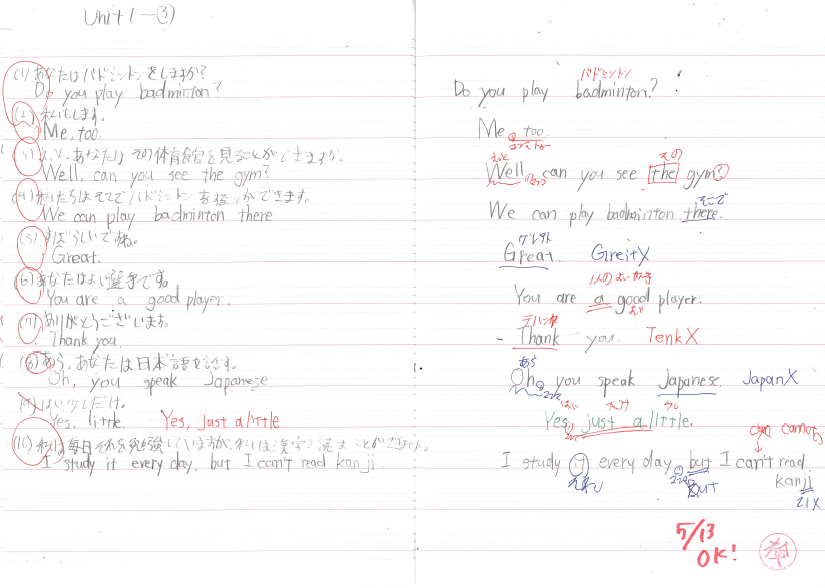 Unit 1-③
(1) あなたはバドミントンをしますか?
Do you play badminton?
(2) 私もします。
Me, too.
(3) えっと、あなたはその体育館を見ることができますか。
Well, can you see the gym?
(4) 私たちはそこでバドミントンを ができます。
We can play badminton there
(5) すばらしいですね。
Great.
(6) あなたはよい選手です。
You are a good player.
(7) ありがとうございます。
Thank you.
(8) あら、あなたは日本語を話す。
Oh, you speak Japanese
(9) はい少しだけ。
Yes, little. Yes, just a little.
(10) 私は毎日それを勉強していますが、私は漢字 読むことができません。
I study it every day, but I can't read kanji.
バドミントン
Do you play badminton?
Me, too.
コンマ
えっと その
Well, can you see the gym?
そこで
We can play badminton there.
グレイト
Great. GreitX
1人のよい
You are a good player.
よい
Thank you. TenkX
あら
Oh, you speak Japanese. JapanX
はい だけ
Yes, just a little.
can cannot
I study it every day, but I can't read
But
kanji
5/13
OK!